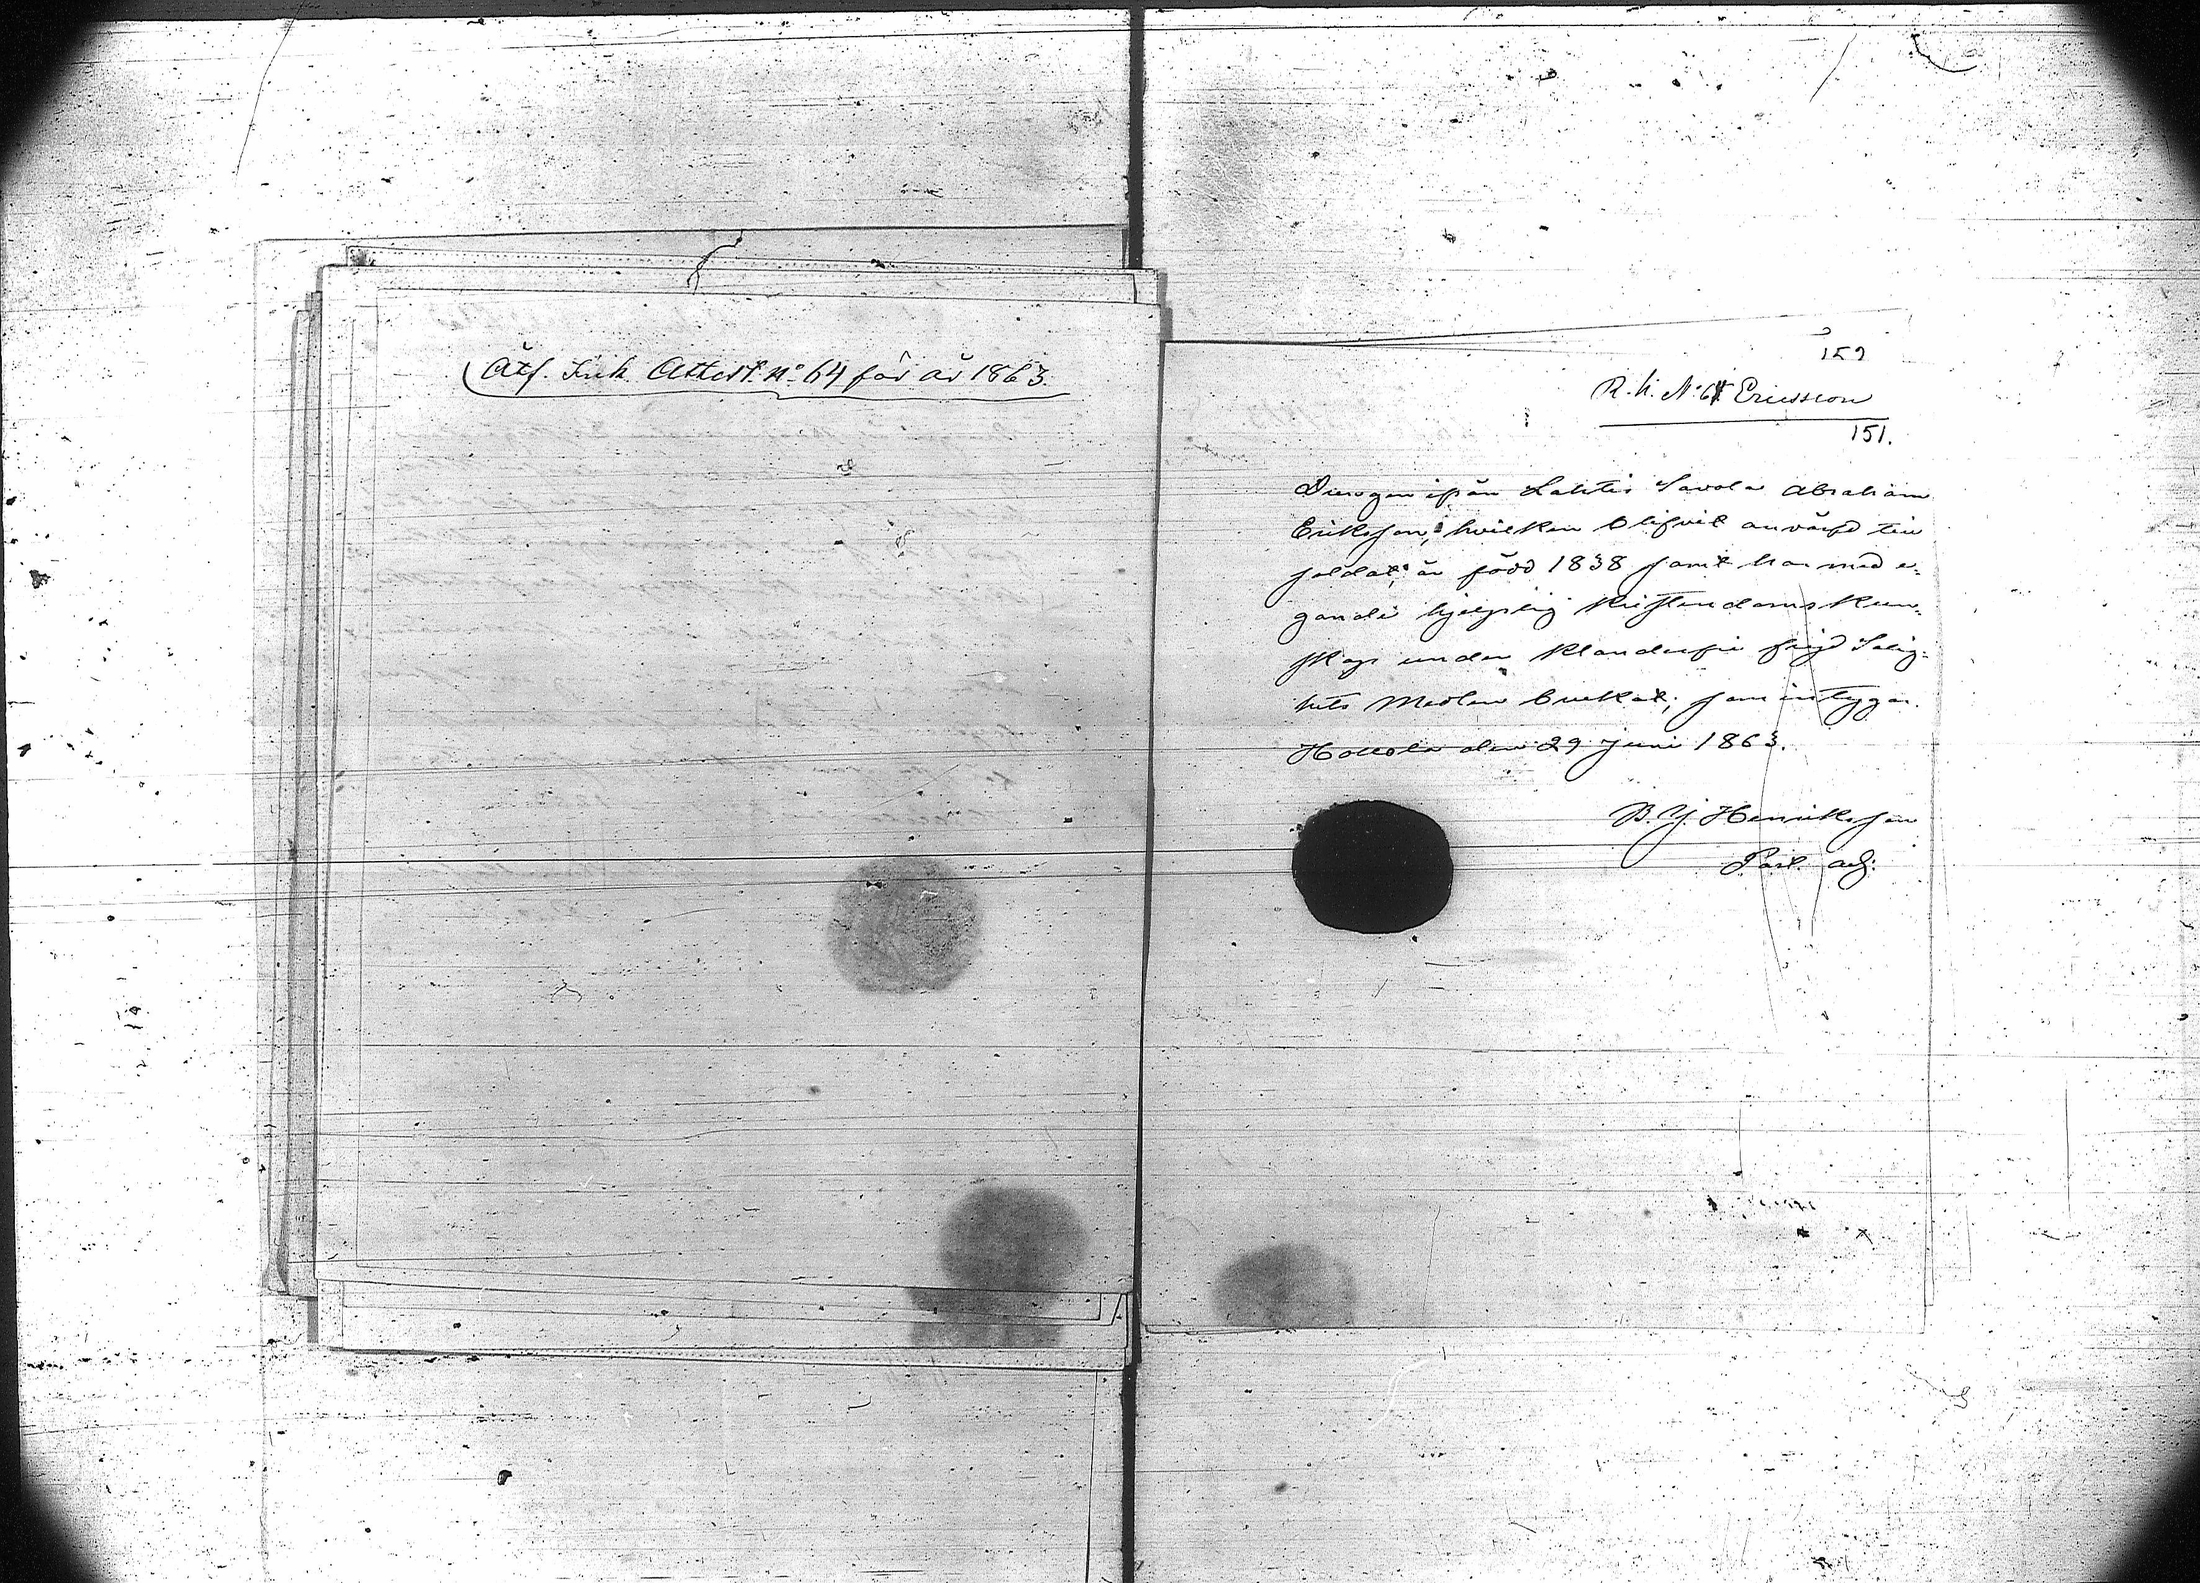 Åtf. Kirk. Attest. No 64 för år 1863.
159
R. k. No 64 Ericsson
151.
Drengen ifrån Lahtis Savola Abraham
Eriksson, hvilken blifvit anvärfd till
soldat, är född 1838 samt har med e-
gande hjelplig kristendoms kun-
skap under klanderfri frejd Salig-
hets Medlen brukat; som intygar.
Hollola den 29 Juni 1863.
B. J. Henriksson
Past. adj: